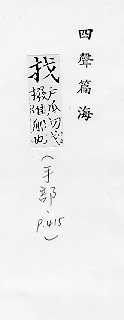 四聲篇海
找
戶瓜切
撥進船也
(手部、P.415)